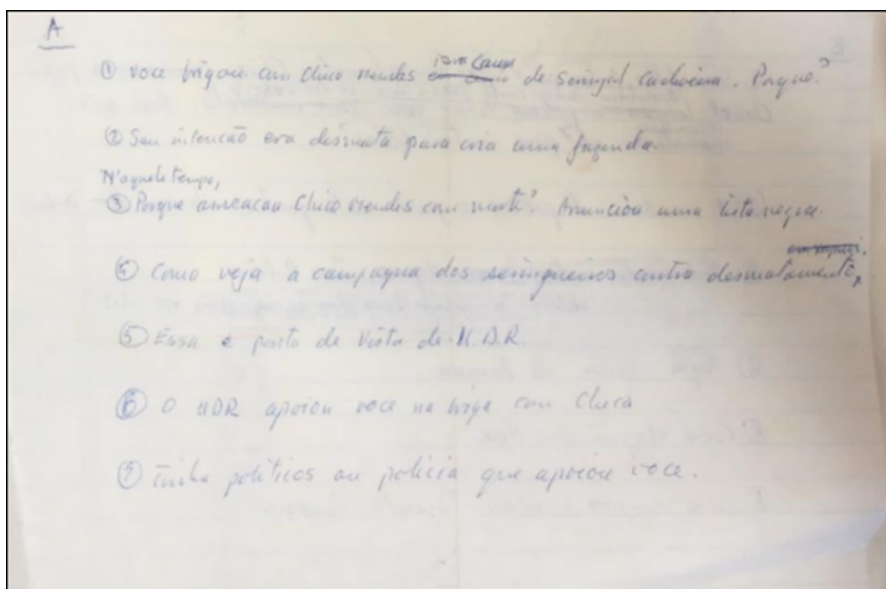 A
① Voce brigou com Chico Mendes por causa de seringal cachoeira. Porque?
② Seu intencão era desmata para cria uma fazenda.
N'aquele tempo,
③ Porque ameacau Chico Mendes com morte? Anunciou uma lista negra.
④ Como veja a campagna dos seringueiros contra desmatamento
⑤ Essa e ponto de vista de U.D.R.
⑥ O UDR apoiou voce na briga com Chico
⑦ Tinha politicos ou policia que apoiou voce.